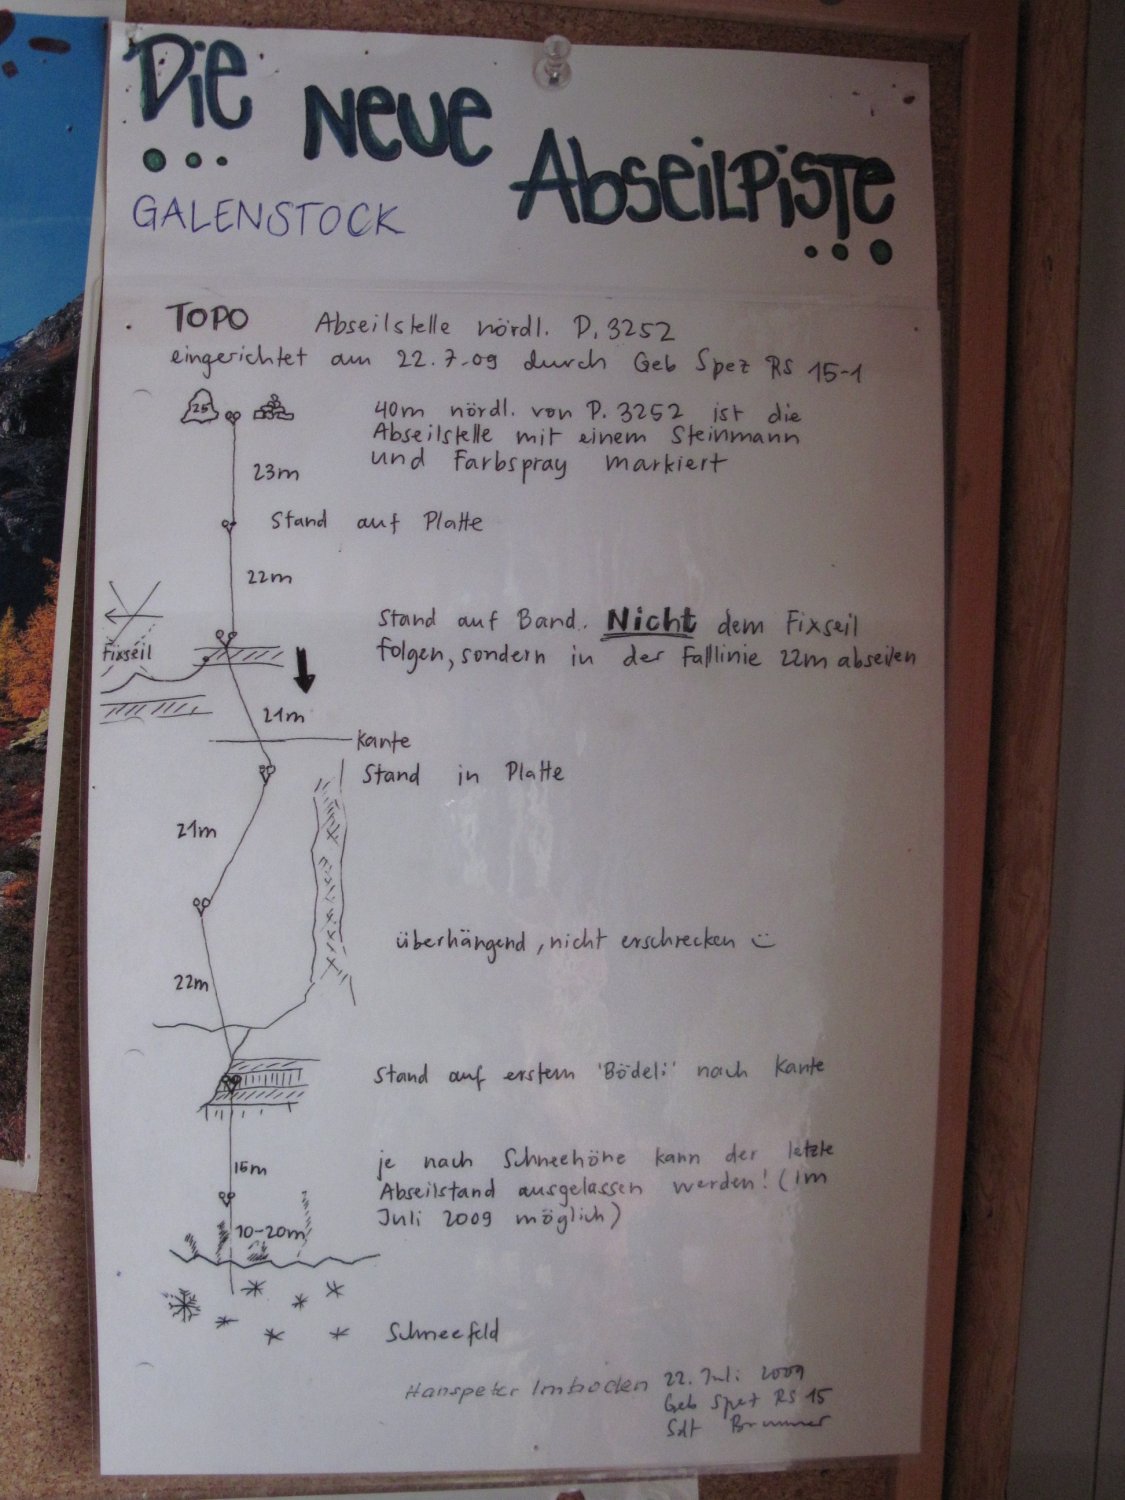 Die Neue Abseilpiste
GALENSTOCK
TOPO Abseilstelle nördl. P. 3252
eingerichtet am 22.7.09 durch Geb Spez RS 15-1
25
40m nördl. von P. 3252 ist die
Abseilstelle mit einem Steinmann
und Farbspray markiert
23m
Stand auf Platte
22m
Stand auf Band. Nicht dem Fixseil
folgen, sondern in der Falllinie 22m abseilen
Fixseil
21m
Kante
Stand in Platte
21m
überhängend, nicht erschrecken
22m
Stand auf erstem 'Bödeli' nach Kante
je nach Schneehöhe kann der letzte
Abseilstand ausgelassen werden! (im
Juli 2009 möglich)
15m
10-20m
Schneefeld
Hanspeter Imboden 22. Juli 2009
Geb Spez RS 15
Sdt Brunner